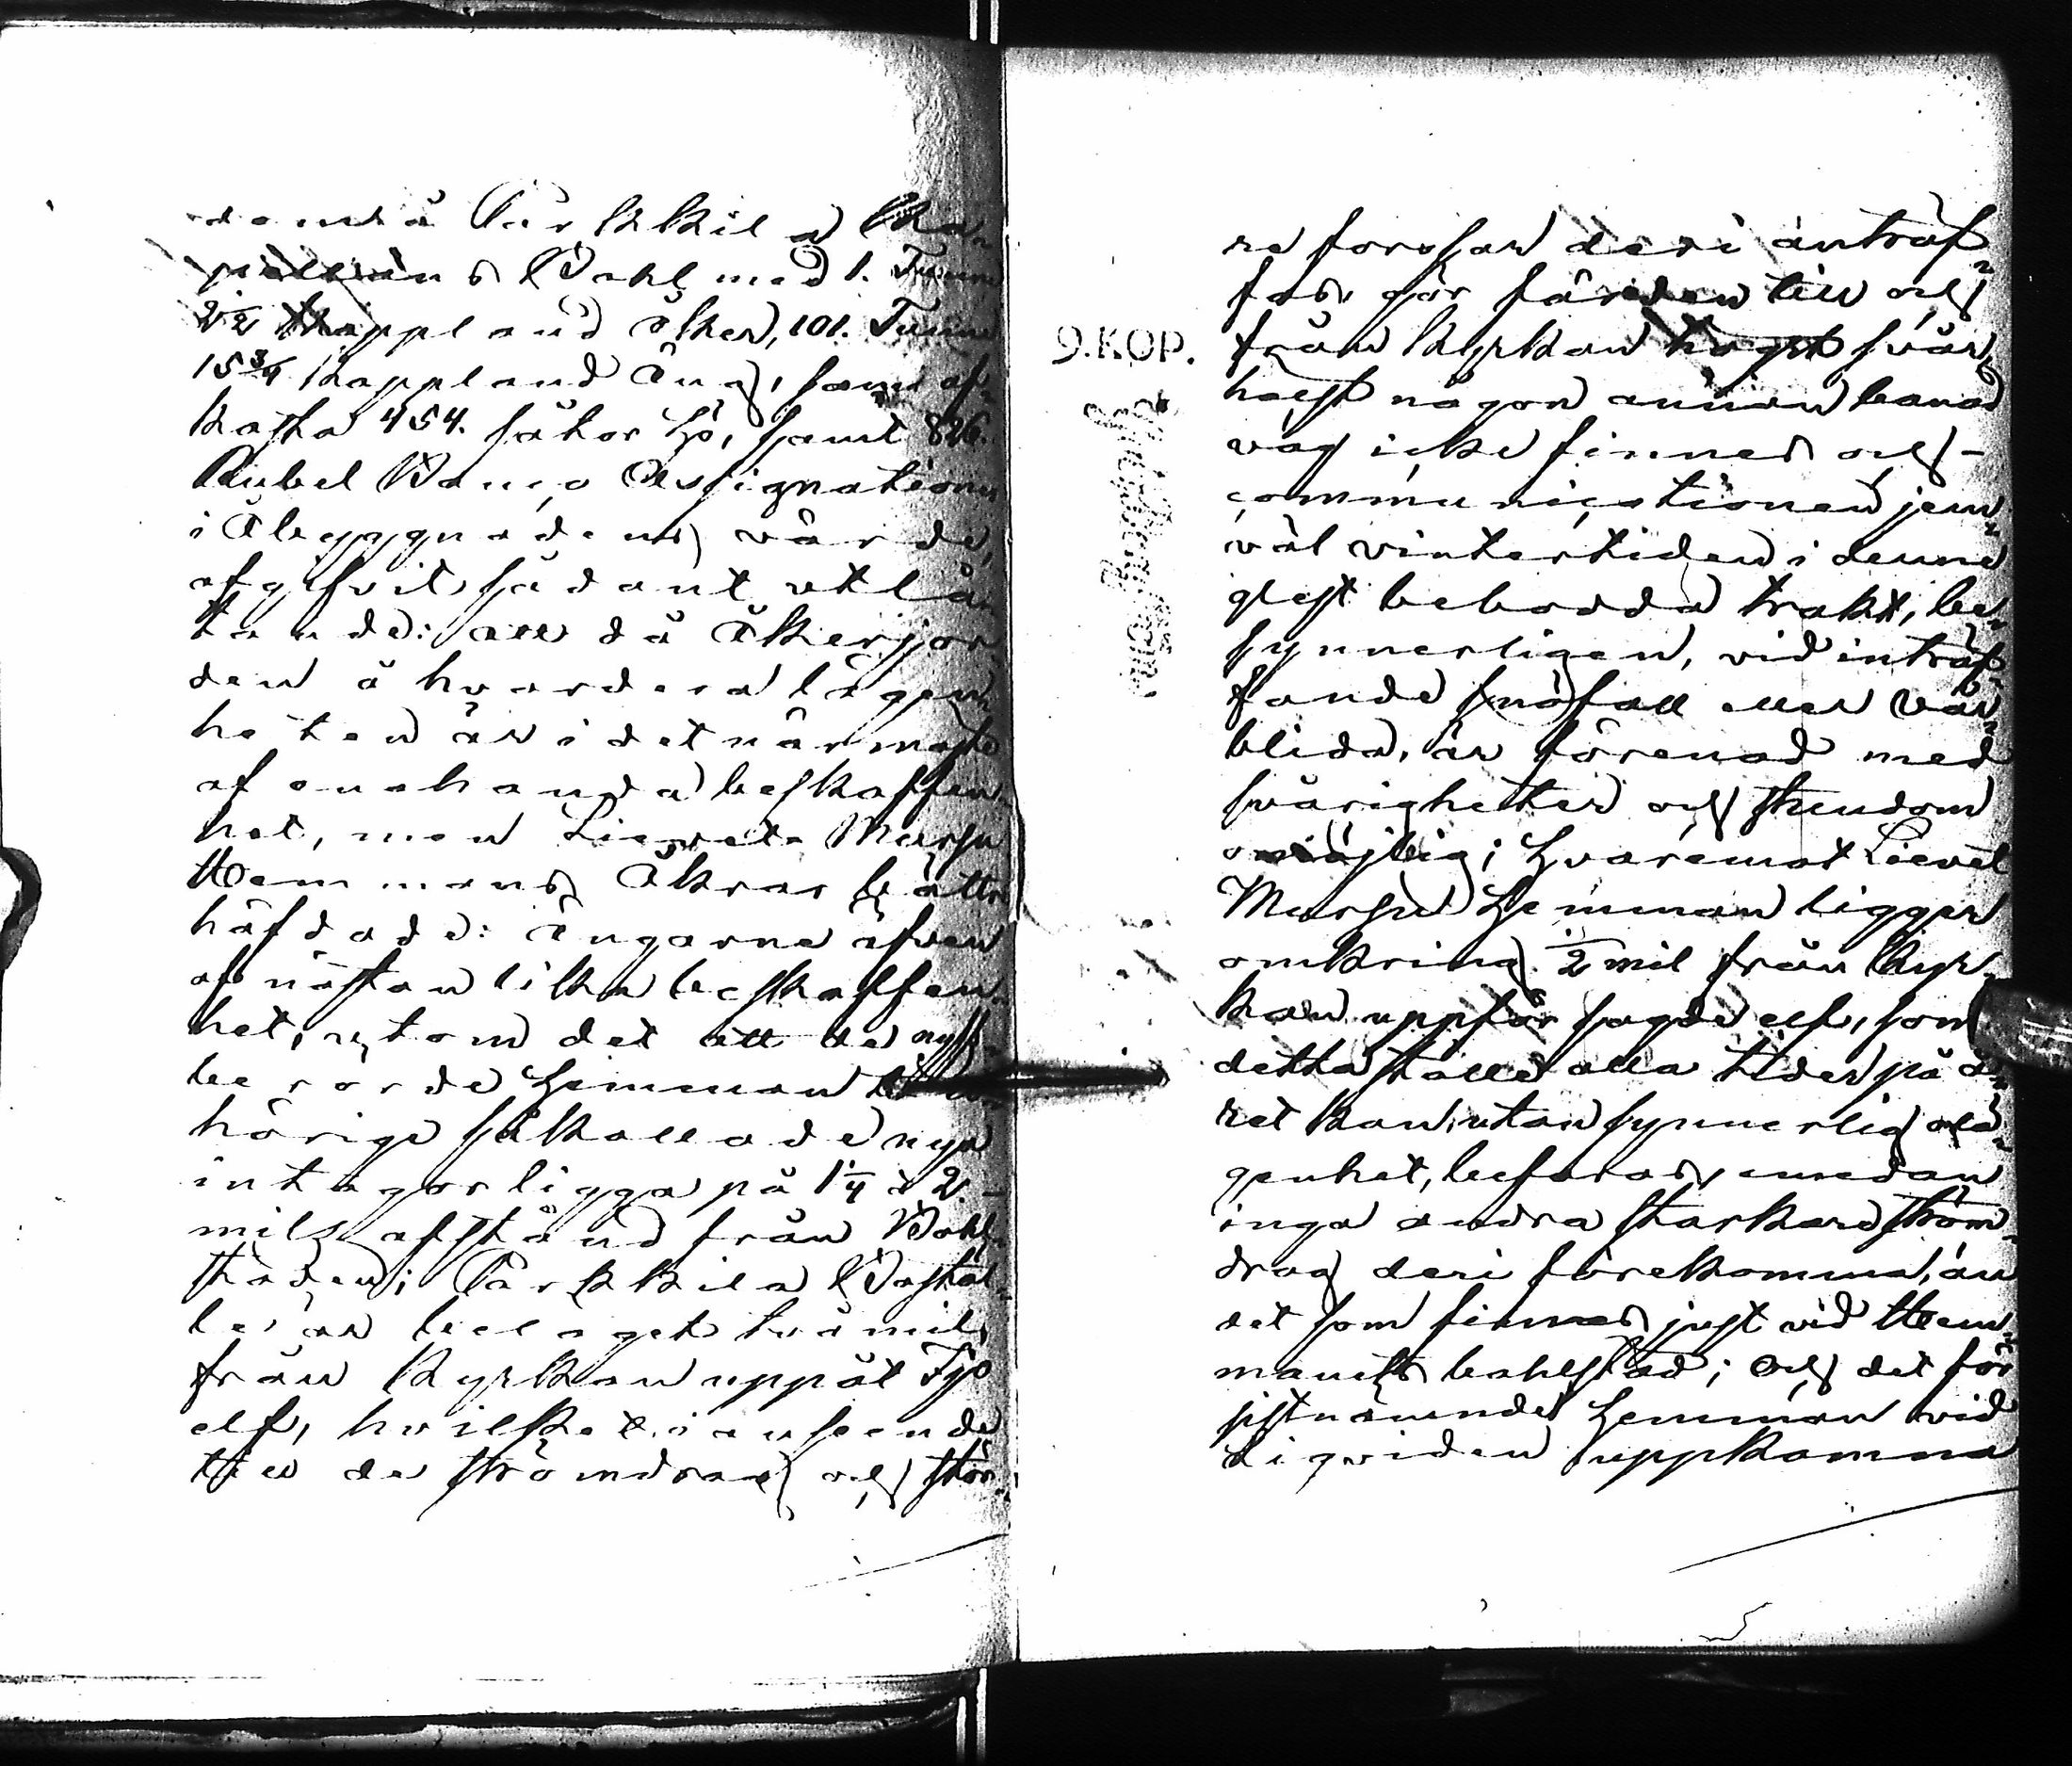 demå Pärkkila Ka-
pellans Bohl med 1. Tunne
2½ Kappland åker, 101. Tunne
15¾ Kappland Äng, som af-
kasta 454. såtor Hö, samt 826.
Rubel Banco Assignationer
i Åbyggnadens värde,
afgifvit sådant utlå-
tande: att då Åkerjor-
den å hvardera lägen-
heten är i det närmaste
af enahanda beskaffen-
het, men Lievete Marsu
Hemmans Åkrar bättre
häfdade: Ängarne äfven
af nästan lika beskaffen-
het, utom det att de nyss-
berörde Hemman till-
hörige så kallade nya
intagor ligga på 1¼ à 2.-
mils afstånd från Bohl-
staden; Pärkkila Bostäl-
le är belaget två mil
från Kyrkan uppåt Ijo
elf, hvilket i anseende
till de strömdrag och stör-
re forssar deri anträf-
fas, gör färden till och
9.KOP. från Kyrkan högst svår,
helst någon annan banad
väg icke finnes och -
communicationen jem-
väl vintertiden i denne
glest bebodda trakt, be-
synnerligen, vid inträf-
fande snöfall eller vår-
blida, är förenad med
svårigheter och stundom
omöjlig; Hvaremot Lievet
Marsu Hemman ligger
omkring ½ mil från Kyr-
kan uppför sagde elf, som
detta ställe alla tider på å-
ret kan, utan synnerlig olä-
genhet, befaras, emedan
inga andra starkare ström-
drag deri förekomma, än
det som finnes just vid Hem-
manets bohlstad; Och det för
sistnämnde Hemman vid
Liqviden uppkomna